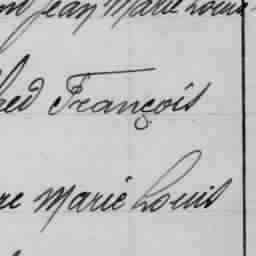 Jean Marie Louis
François
Marie Louis